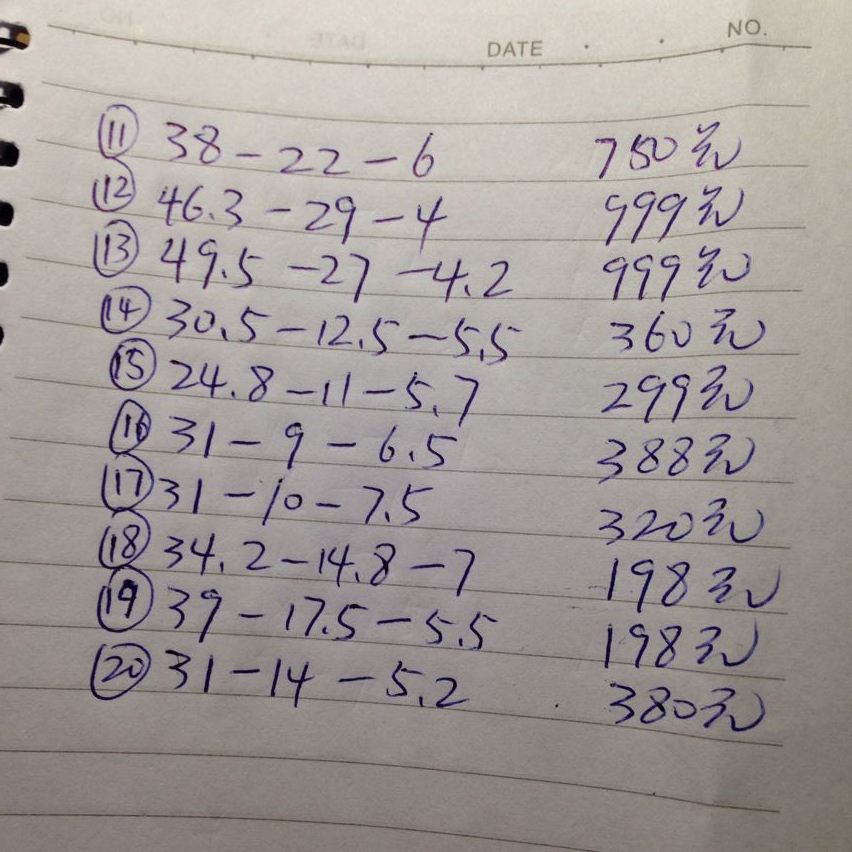 NO.
DATE
⑪ 38-22-6 780元
⑫ 46.3-29-4 999元
⑬ 49.5-27-4.2 999元
⑭ 30.5-12.5-5.5 360元
⑮ 24.8-11-5.7 299元
⑯ 31-9-6.5 388元
⑰ 31-10-7.5 320元
⑱ 34.2-14.8-7 198元
⑲ 39-17.5-5.5 198元
⑳ 31-14-5.2 380元